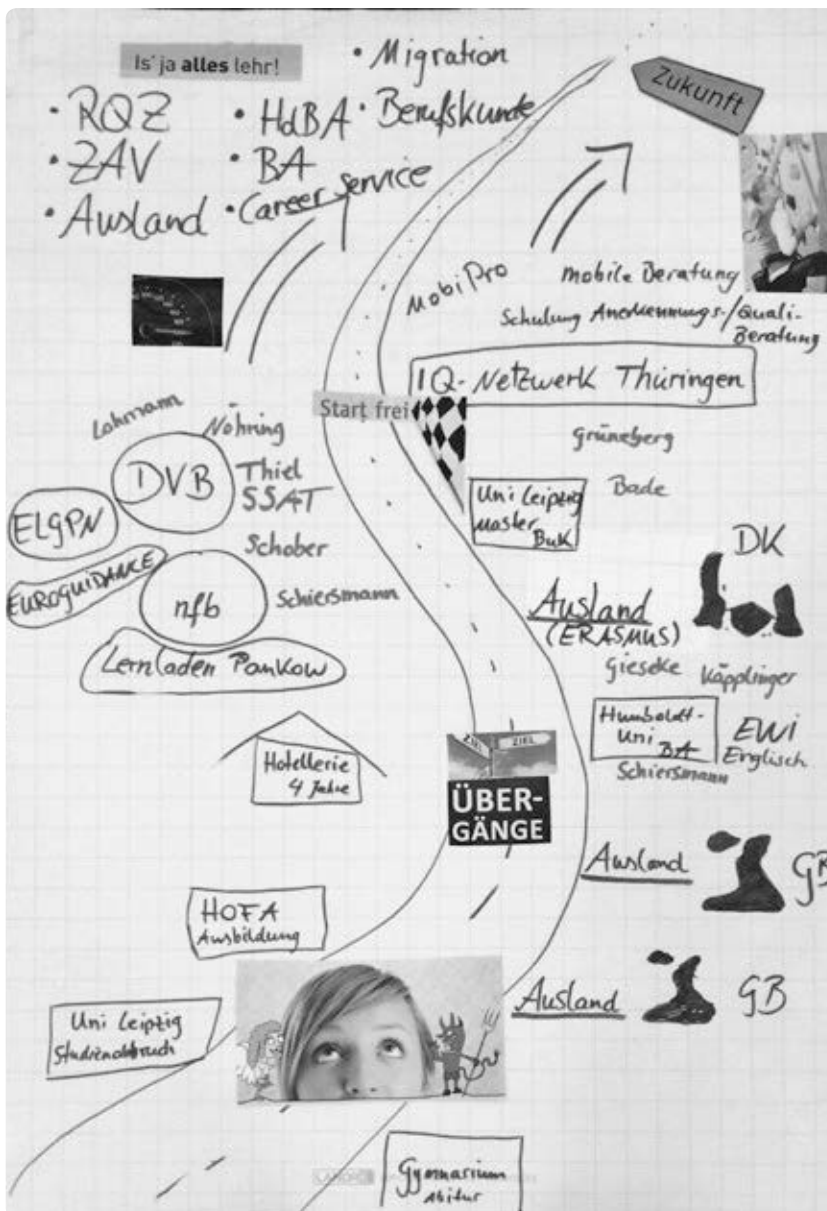 Is' ja alles lehr!
• Migration
• RQZ
• HdBA
• Berufskunde
• ZAV
• BA
• Ausland
• Career Service
Zukunft
MobiPro
mobile Beratung
Schulung Anerkennungs-/Quali-
Beratung
IQ-Netzwerk Thüringen
Start frei
Lohmann
Nöhring
DVB
Thiel
SSAT
ELGPN
Schober
EUROGUIDANCE
nfb
Schiersmann
Lernladen Pankow
Grüneberg
Bade
Uni Leipzig
Master
BuK
DK
Ausland
(ERASMUS)
Gieseke
Käpplinger
Humboldt-
Uni
BA
EWi
Englisch
Schiersmann
Hotellerie
4 Jahre
ZIEL
ZIEL
ÜBER-
GÄNGE
Ausland
GB
HOFA
Ausbildung
Ausland
GB
Uni Leipzig
Studienabbruch
Gymnasium
Abitur